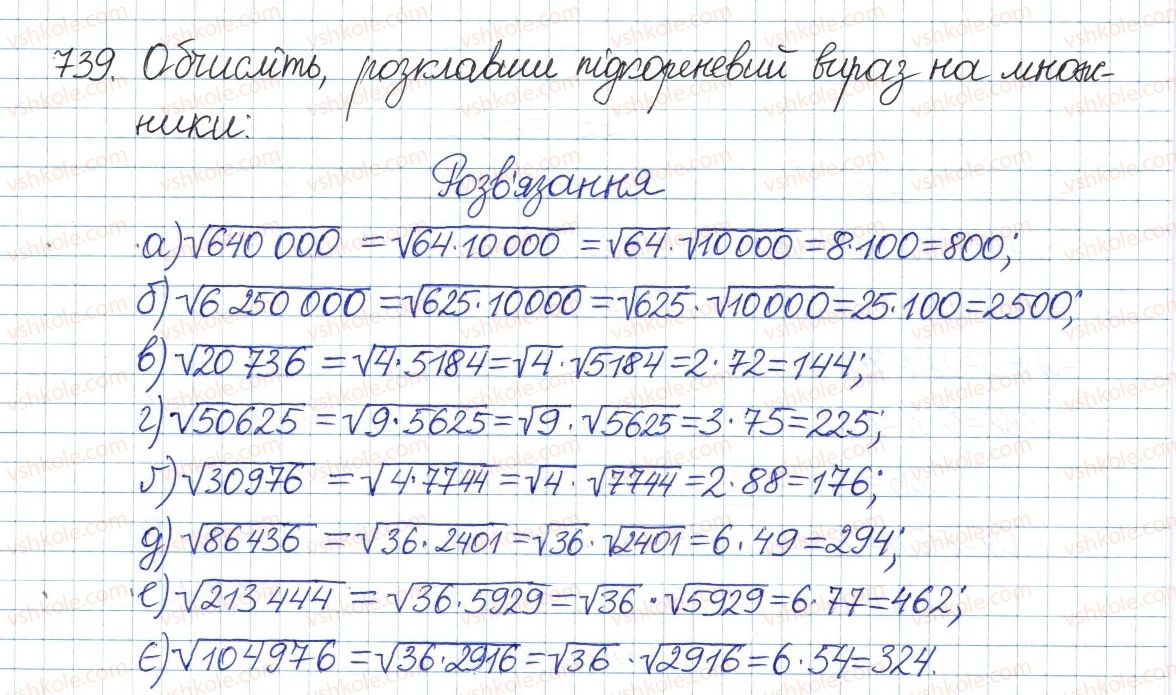 739. Обчисліть, розклавши підкореневий вираз на множ-
ники:
Розв'язання
а) √640 000 = √64·10 000 = √64·√10000 = 8·100 = 800;
б) √6 250 000 = √625·10000 = √625·√10000 = 25·100 = 2500;
в) √20 736 = √4·5184 = √4·√5184 = 2·72 = 144;
г) √50625 = √9·5625 = √9·√5625 = 3·75 = 225;
ґ) √30976 = √4·7744 = √4·√7744 = 2·88 = 176;
д) √86436 = √36·2401 = √36·√2401 = 6·49 = 294;
е) √213 444 = √36·5929 = √36·√5929 = 6·77 = 462;
є) √104976 = √36·2916 = √36·√2916 = 6·54 = 324.